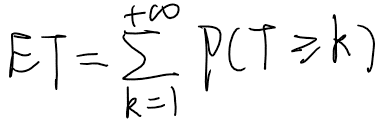 ET = \sum_{k=1}^{+\infty} P(T \geq k)